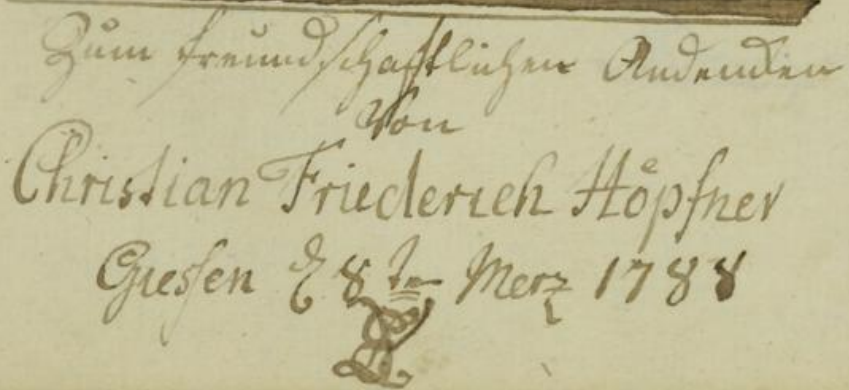 Zum freundschaftlichen Andenken
Von
Christian Friederich Höpfner
Giessen d 8ten Merz 1788